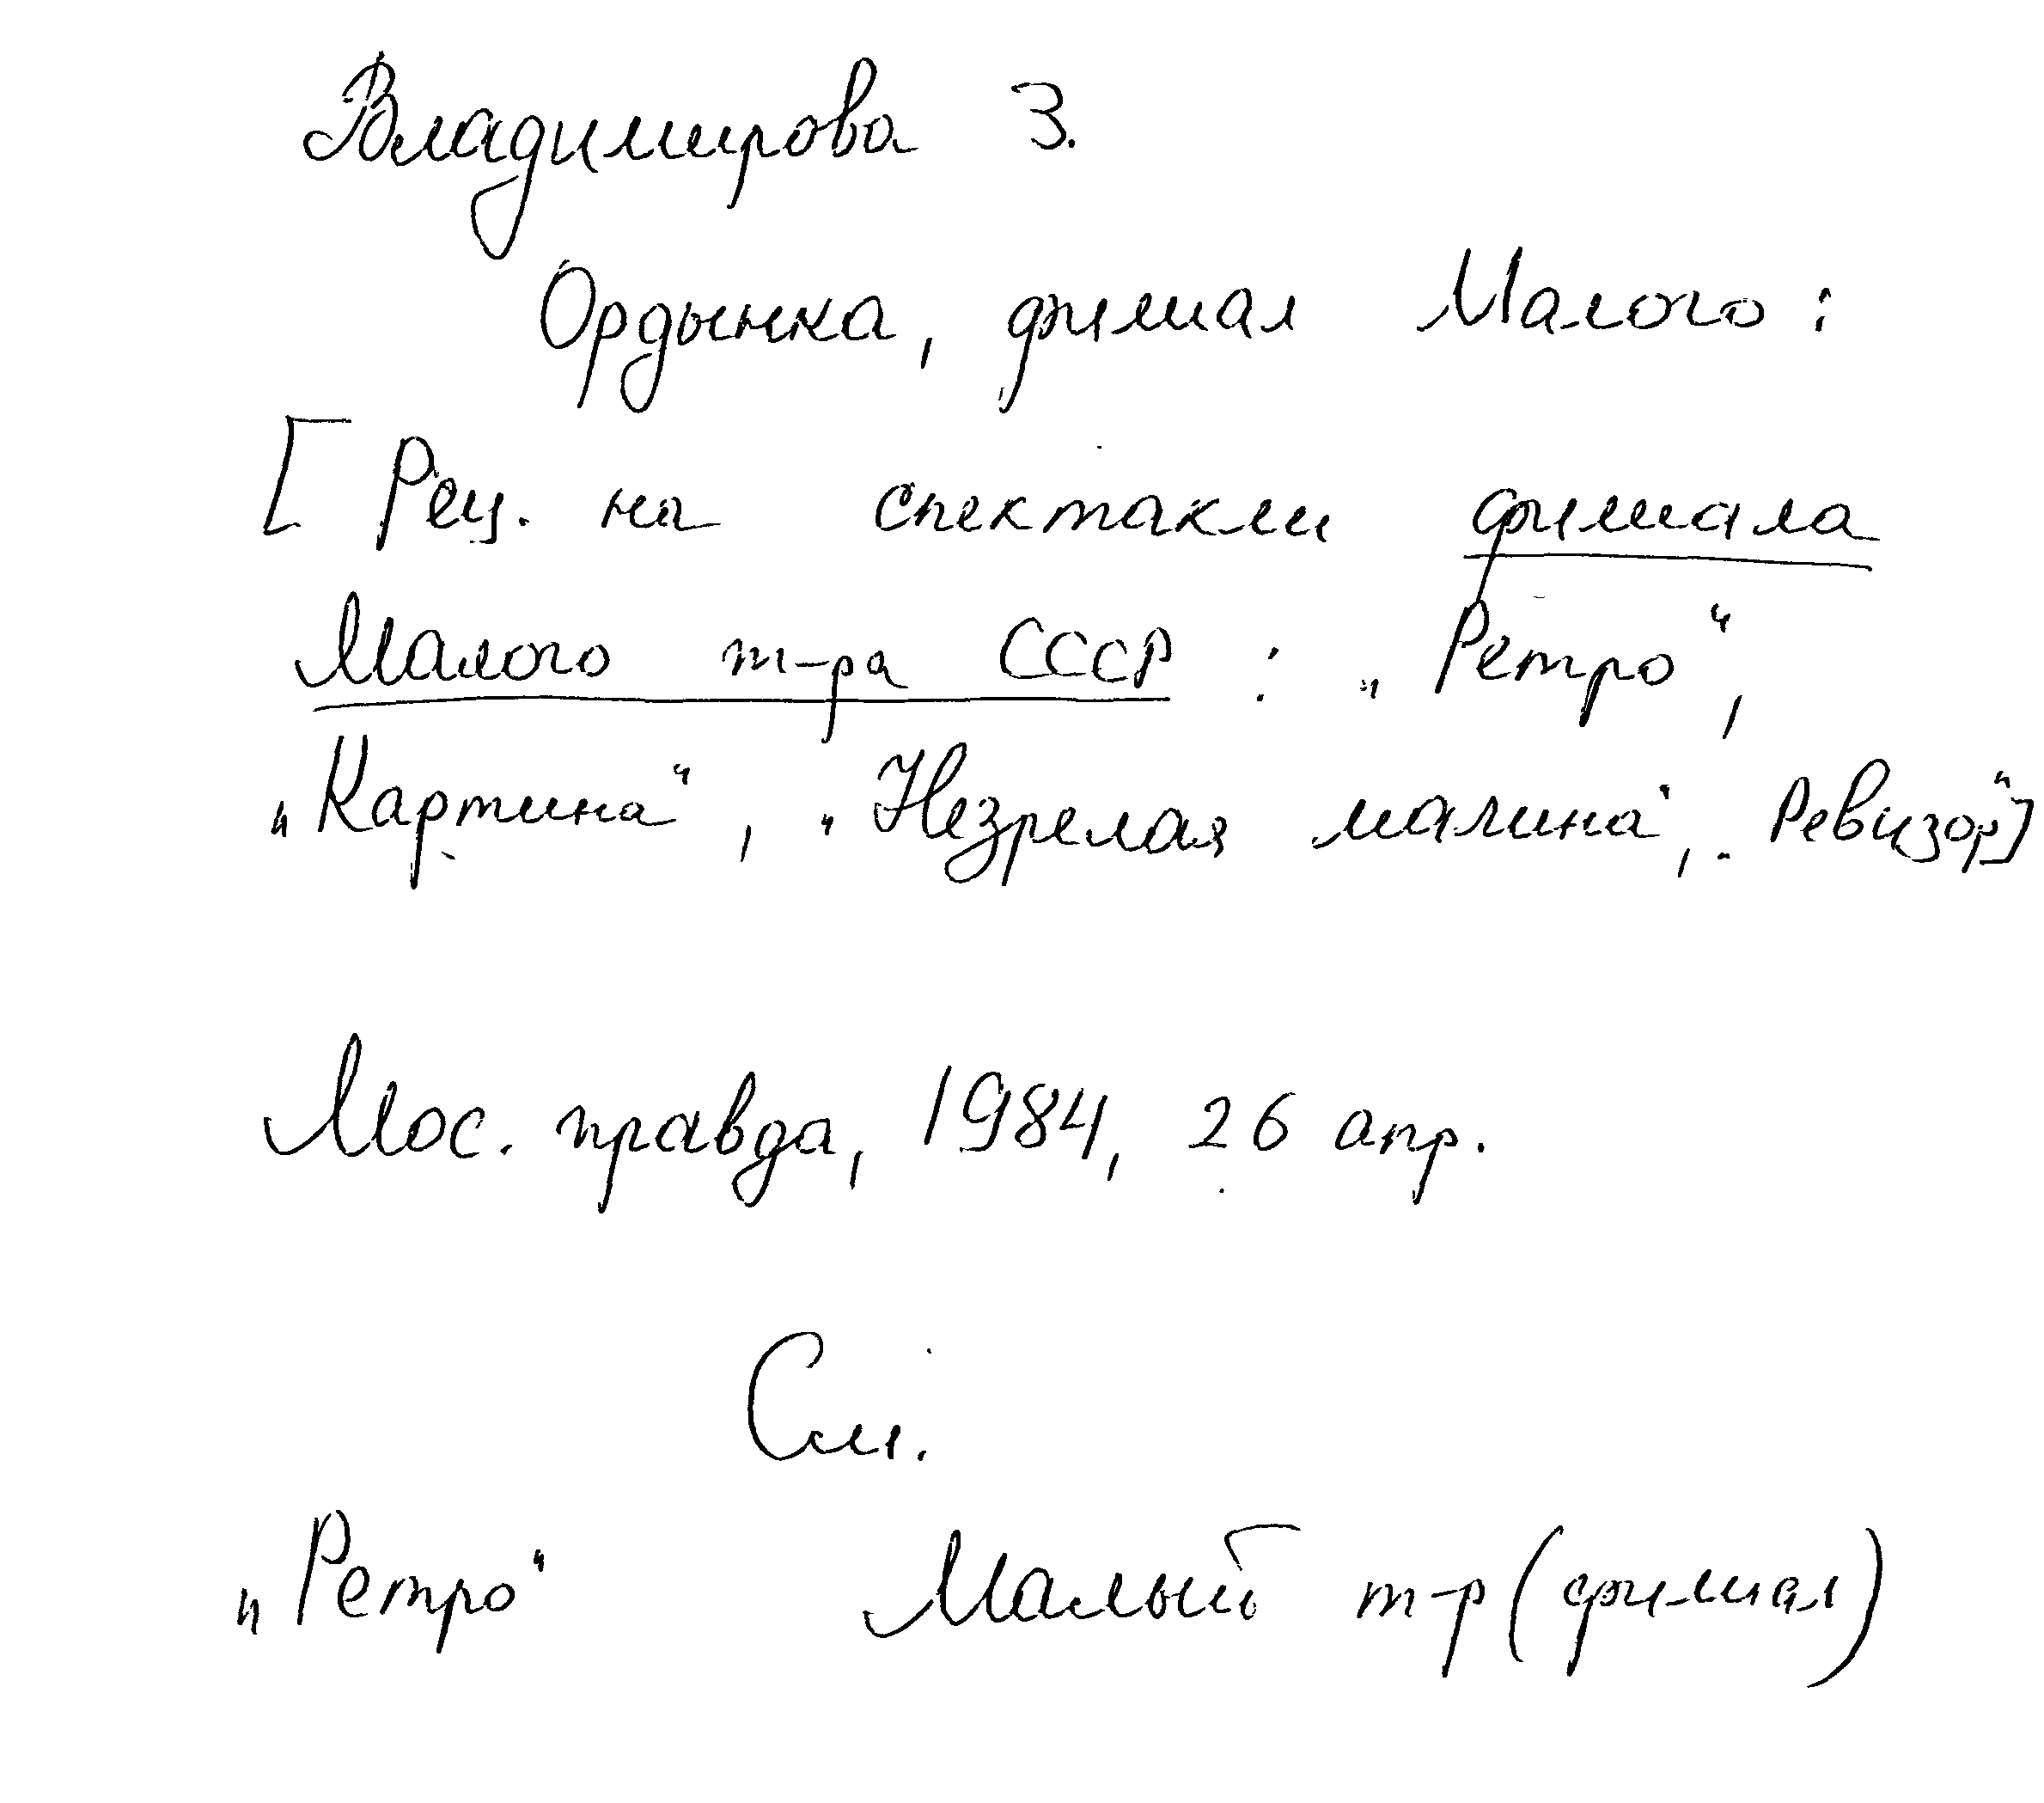 Владимирова З.
Ордынка, филиал Малого:
[Рец. на спектакли филиала
Малого т-ра СССР: „Ретро“,
„Картина“, „Незрелая малина“, „Ревизор“]
Мос. правда, 1984, 26 апр.
См.
„Ретро“ Малый т-р (филиал)